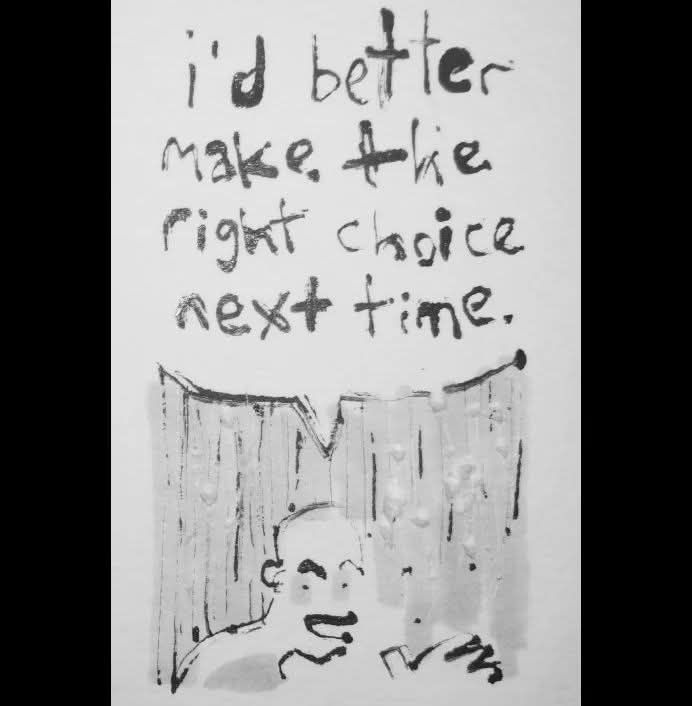 i'd better
make the
right choice
next time.